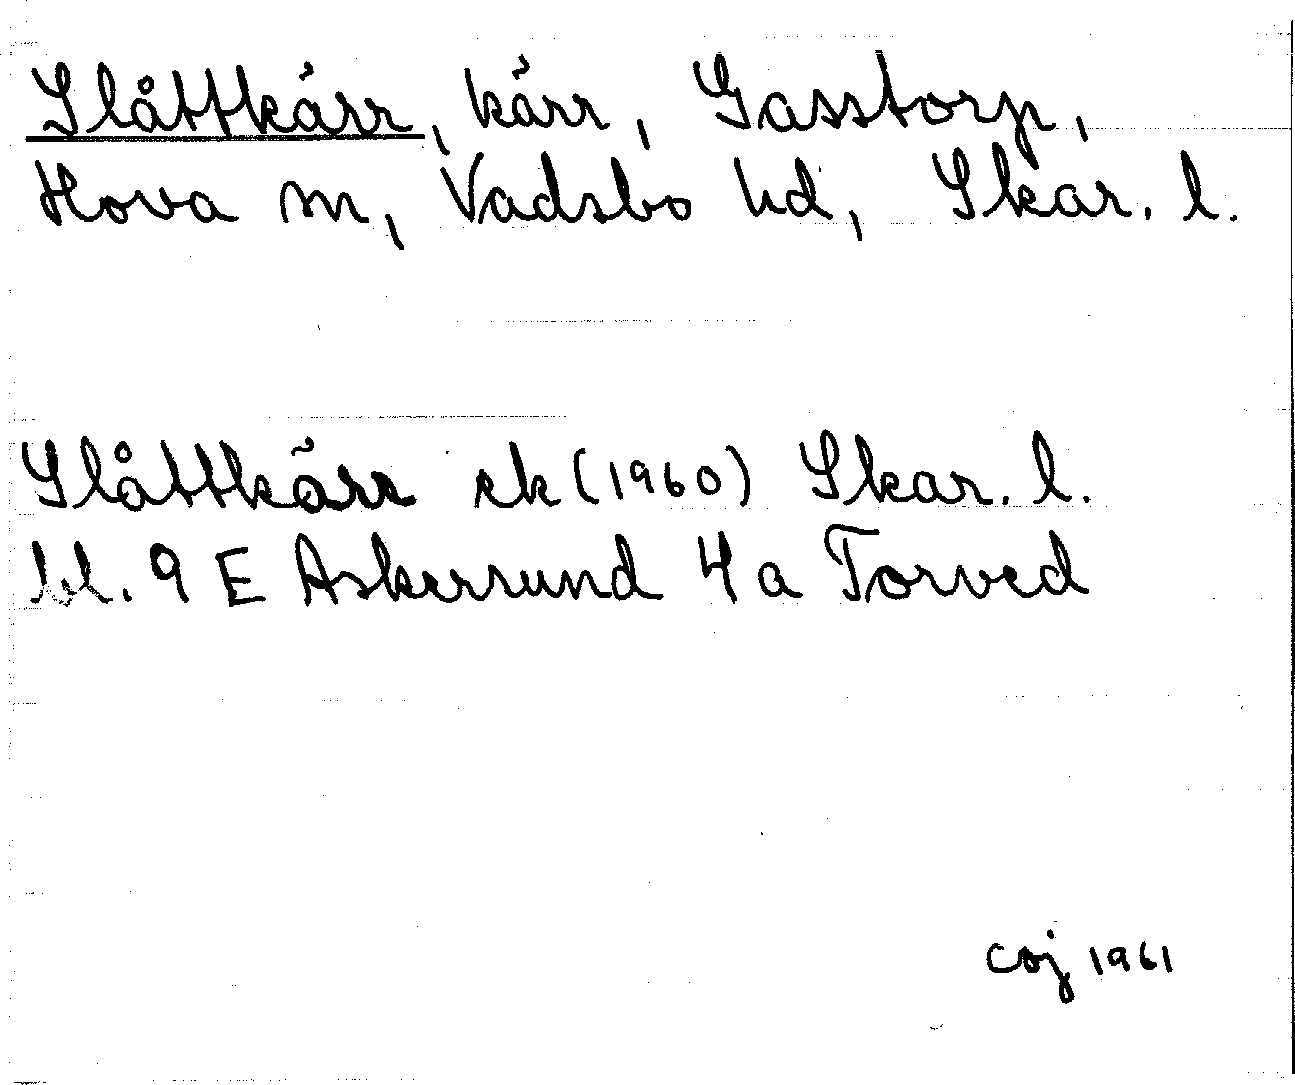 Slåttkärr, kärr, Gasstorp,
Hova sn, Vadsbo hd, Skar. l.
Slåttkärr ek (1960) Skar. l.
bl. 9 E Askersund 4 a Torved
coj 1961